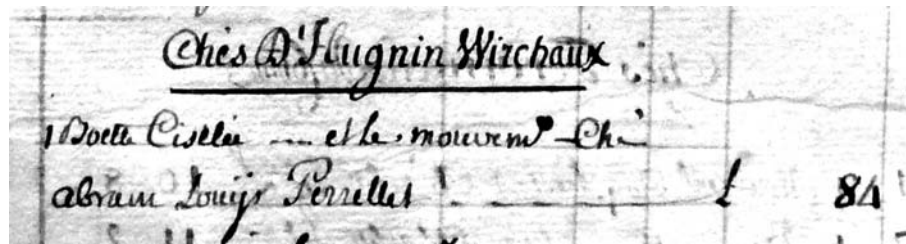 Chés D'Hugnin Wirchaux
1 Boette Cislée — et le mouvemt Ché
abram Louÿs Perrellet — L 84